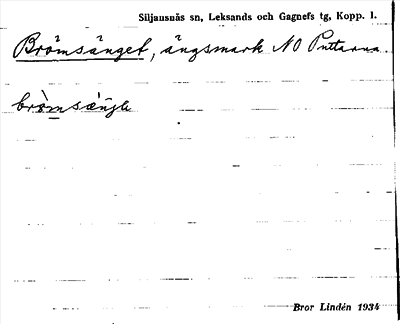 Siljausnäs sn, Leksands och Gagnefs tg, Kopp. l.
Brömsänget, ängsmark NO Puttarna.
Bror Lindén 1934